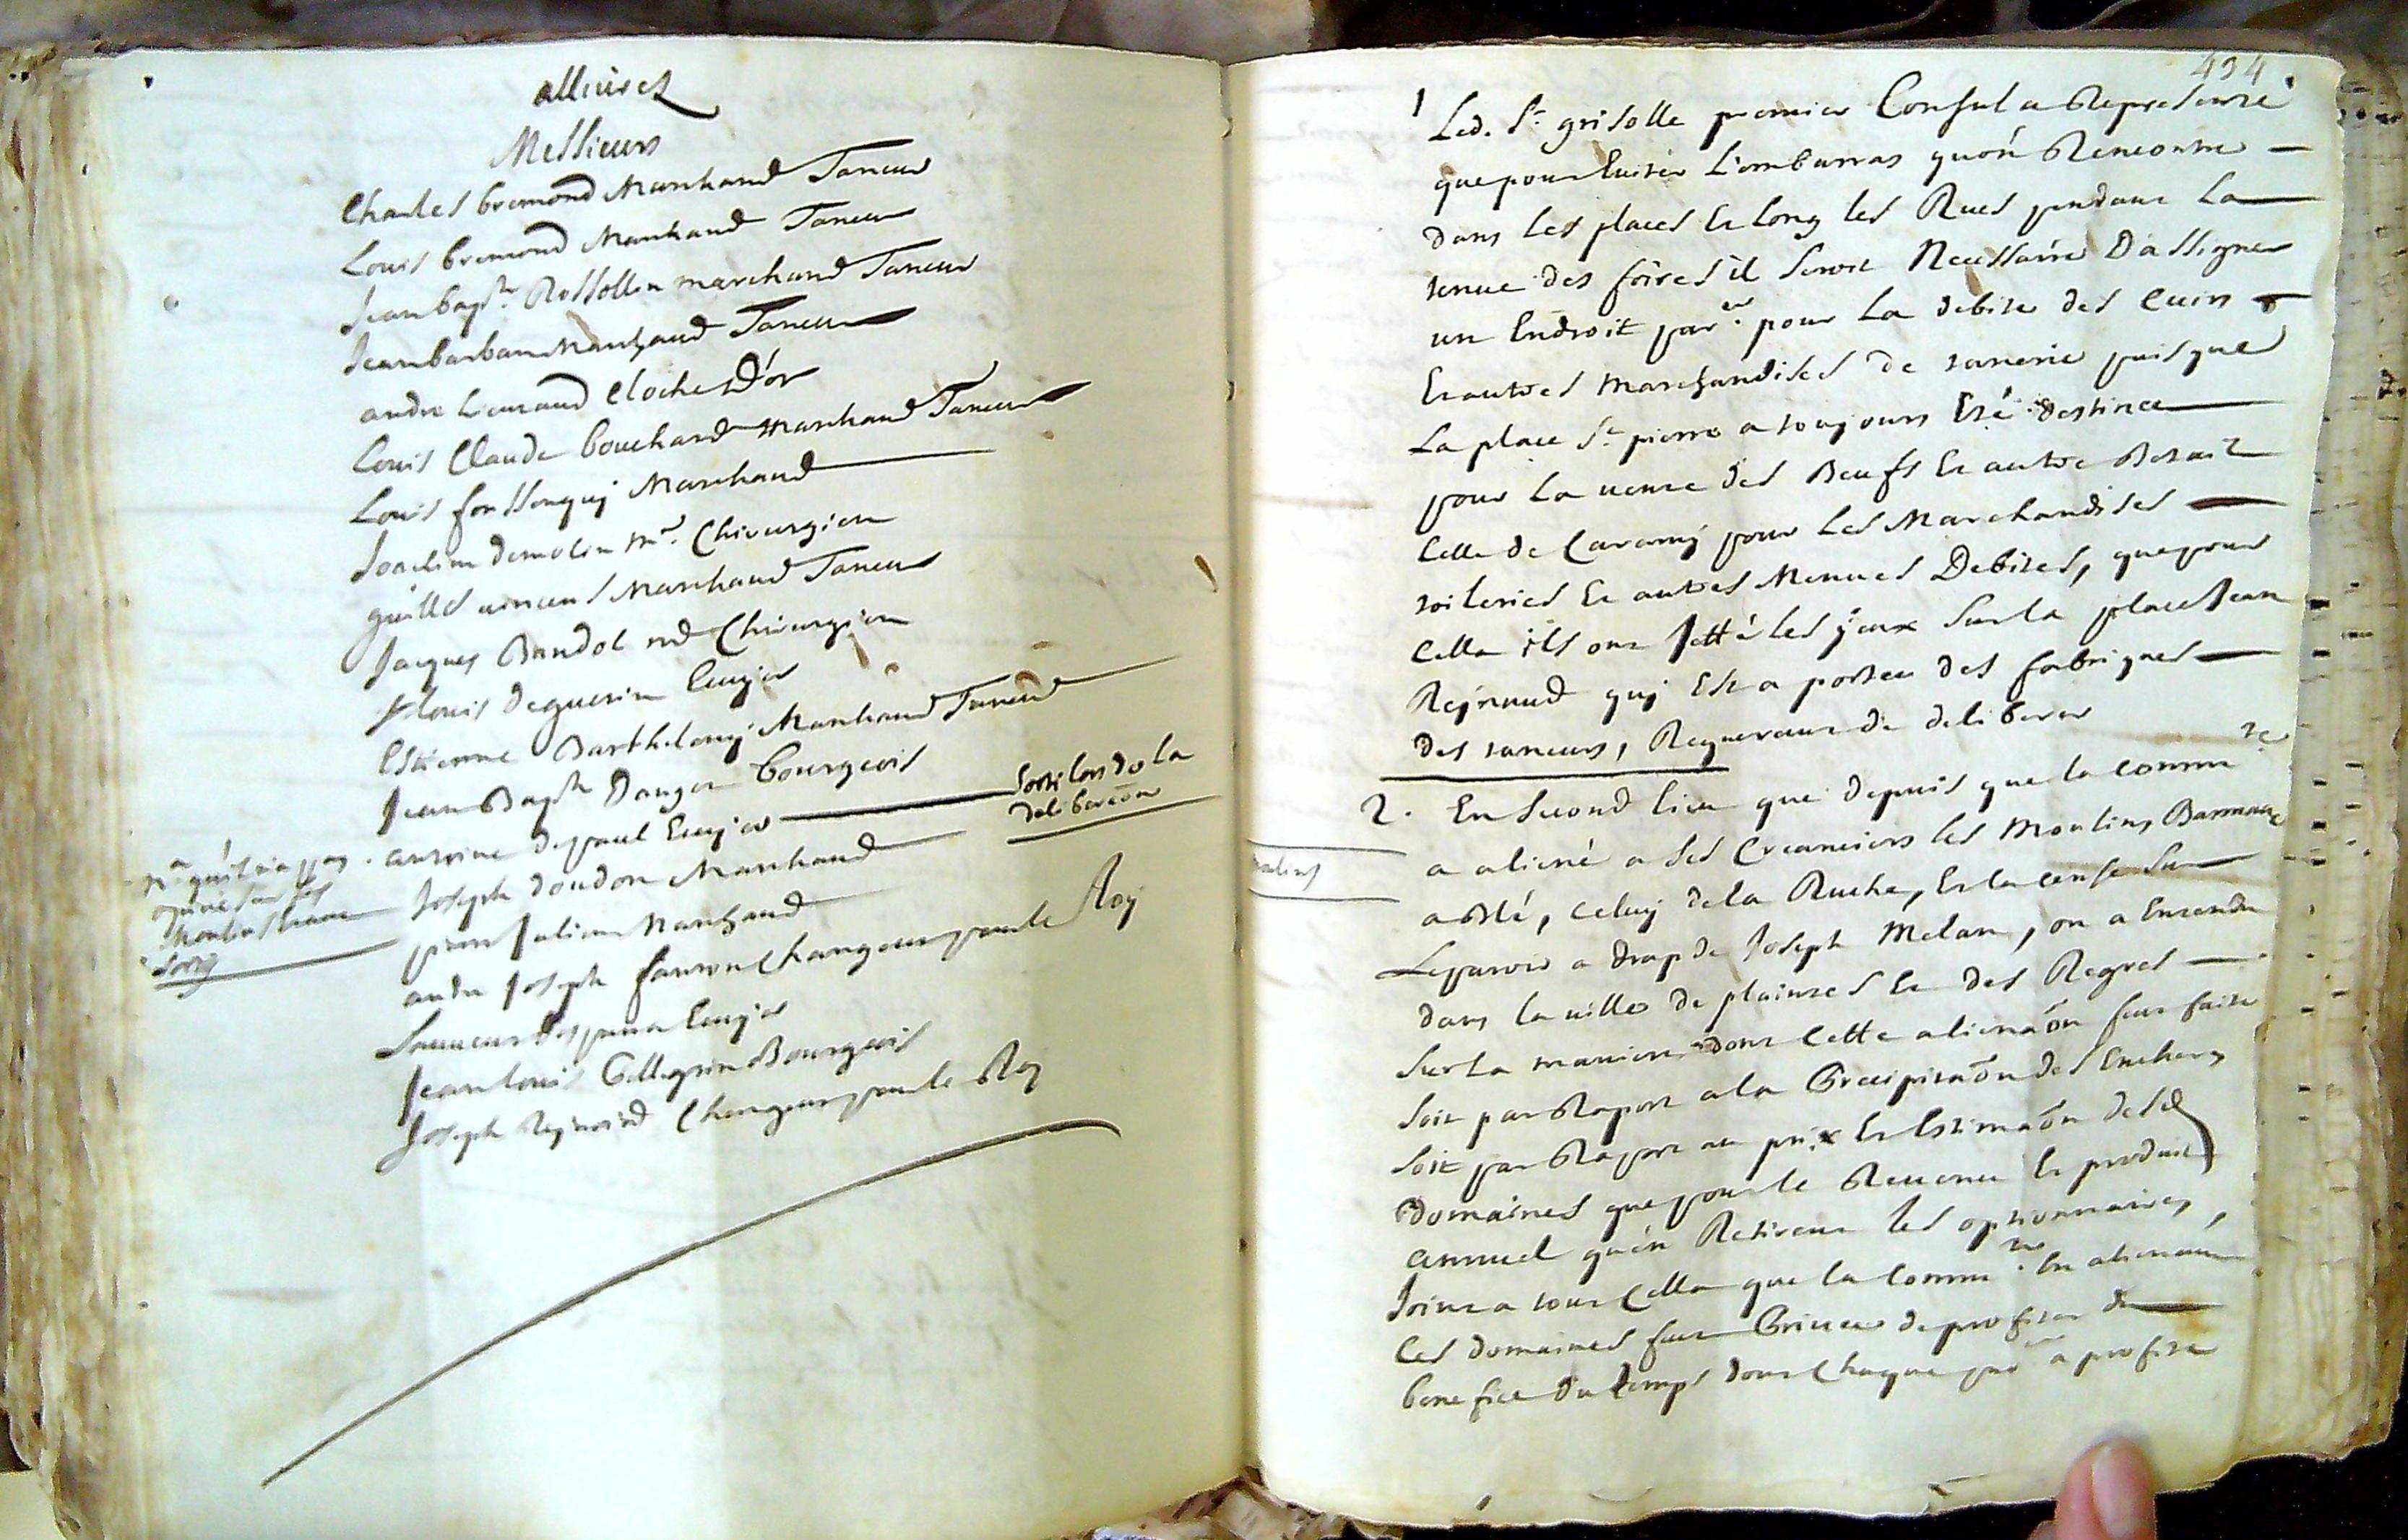 allivrez
Messieurs
Charles bremond Marchand Taneur
Louis bremond Marchand Taneur
Jean bapte. Rossollin marchand Taneur
Jean barban Marchand Taneur
andre Lieutaud Cloche D'or
Louis Claude bouchard Marchand Taneur
Louis fonssenquy Marchand
Joachim demolin me. Chirurgien
guilles vincens Marchand Taneur
Jacques Bandol Chirurgien
Louis deguerin Ecuyer
Estienne Barthelemy Marchand Taneur
Jean Bapte Bourgeois
antoine depaul Ecuyer sorti lors de la
deliberaōn
na. qu'il n'a pas
opiné sur les
moulins
sorti
Joseph doudon Marchand
pierre Julien Marchand
andre Joseph fauron Changeur pour le Roy
Sauveur Ecuyer
Jean Louis Pellegrin Bourgeois
Joseph Reynaud Changeur pour le Roy
434
1 Led. Sr. grisolle premier Consul a Representé
que pour Euiter L'embarras qu'on Rencontre
dans les places Et long les Rues pendant La
tenue des foires il seroit Necessaire D'assigner
un Endroit parer. pour La debite des Cuirs
Et autres marchandises de tanerie puisque
La place St. pierre a toujours Eté destinee
pour La vente des Beufs Et autre Betail
Celle de Caramy pour Les Marchandises
toileries Et autres Menues Debites, que pour
Cella ils ont Jetté les yeux sur la place Jean
Reynaud quy Est a portee des fabriques
des taneurs, Requerant de deliberer
2. En second lieu que depuis que la commté
a aliené a ses Creanciers les Moulins Bannaux
moulins
a Blé, celuy de la Ruche, Et la cense sur
Le paroir a drap de Joseph Melan, on a Entendu
dans la ville de plaintes Et des Regres
sur la maniere dont cette alienaōn fut faite
soit par Raport a la Precipitaōn des Encheres
soit par Raport au prix Et Estimaōn desd
Domaines que pour le Revenu Et produit
annuel qu'en Retirent les optionnaires,
Joint a tout Cella que la commté. En alienant
Ces domaines fut Privée de profiter du
benefice du temps dont Chaque parer a profité